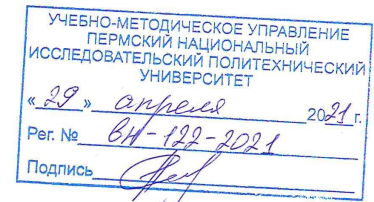 УЧЕБНО-МЕТОДИЧЕСКОЕ УПРАВЛЕНИЕ
ПЕРМСКИЙ НАЦИОНАЛЬНЫЙ
ИССЛЕДОВАТЕЛЬСКИЙ ПОЛИТЕХНИЧЕСКИЙ
УНИВЕРСИТЕТ
«29» апреля 2021 г.
Рег. № вн-122-2021
Подпись